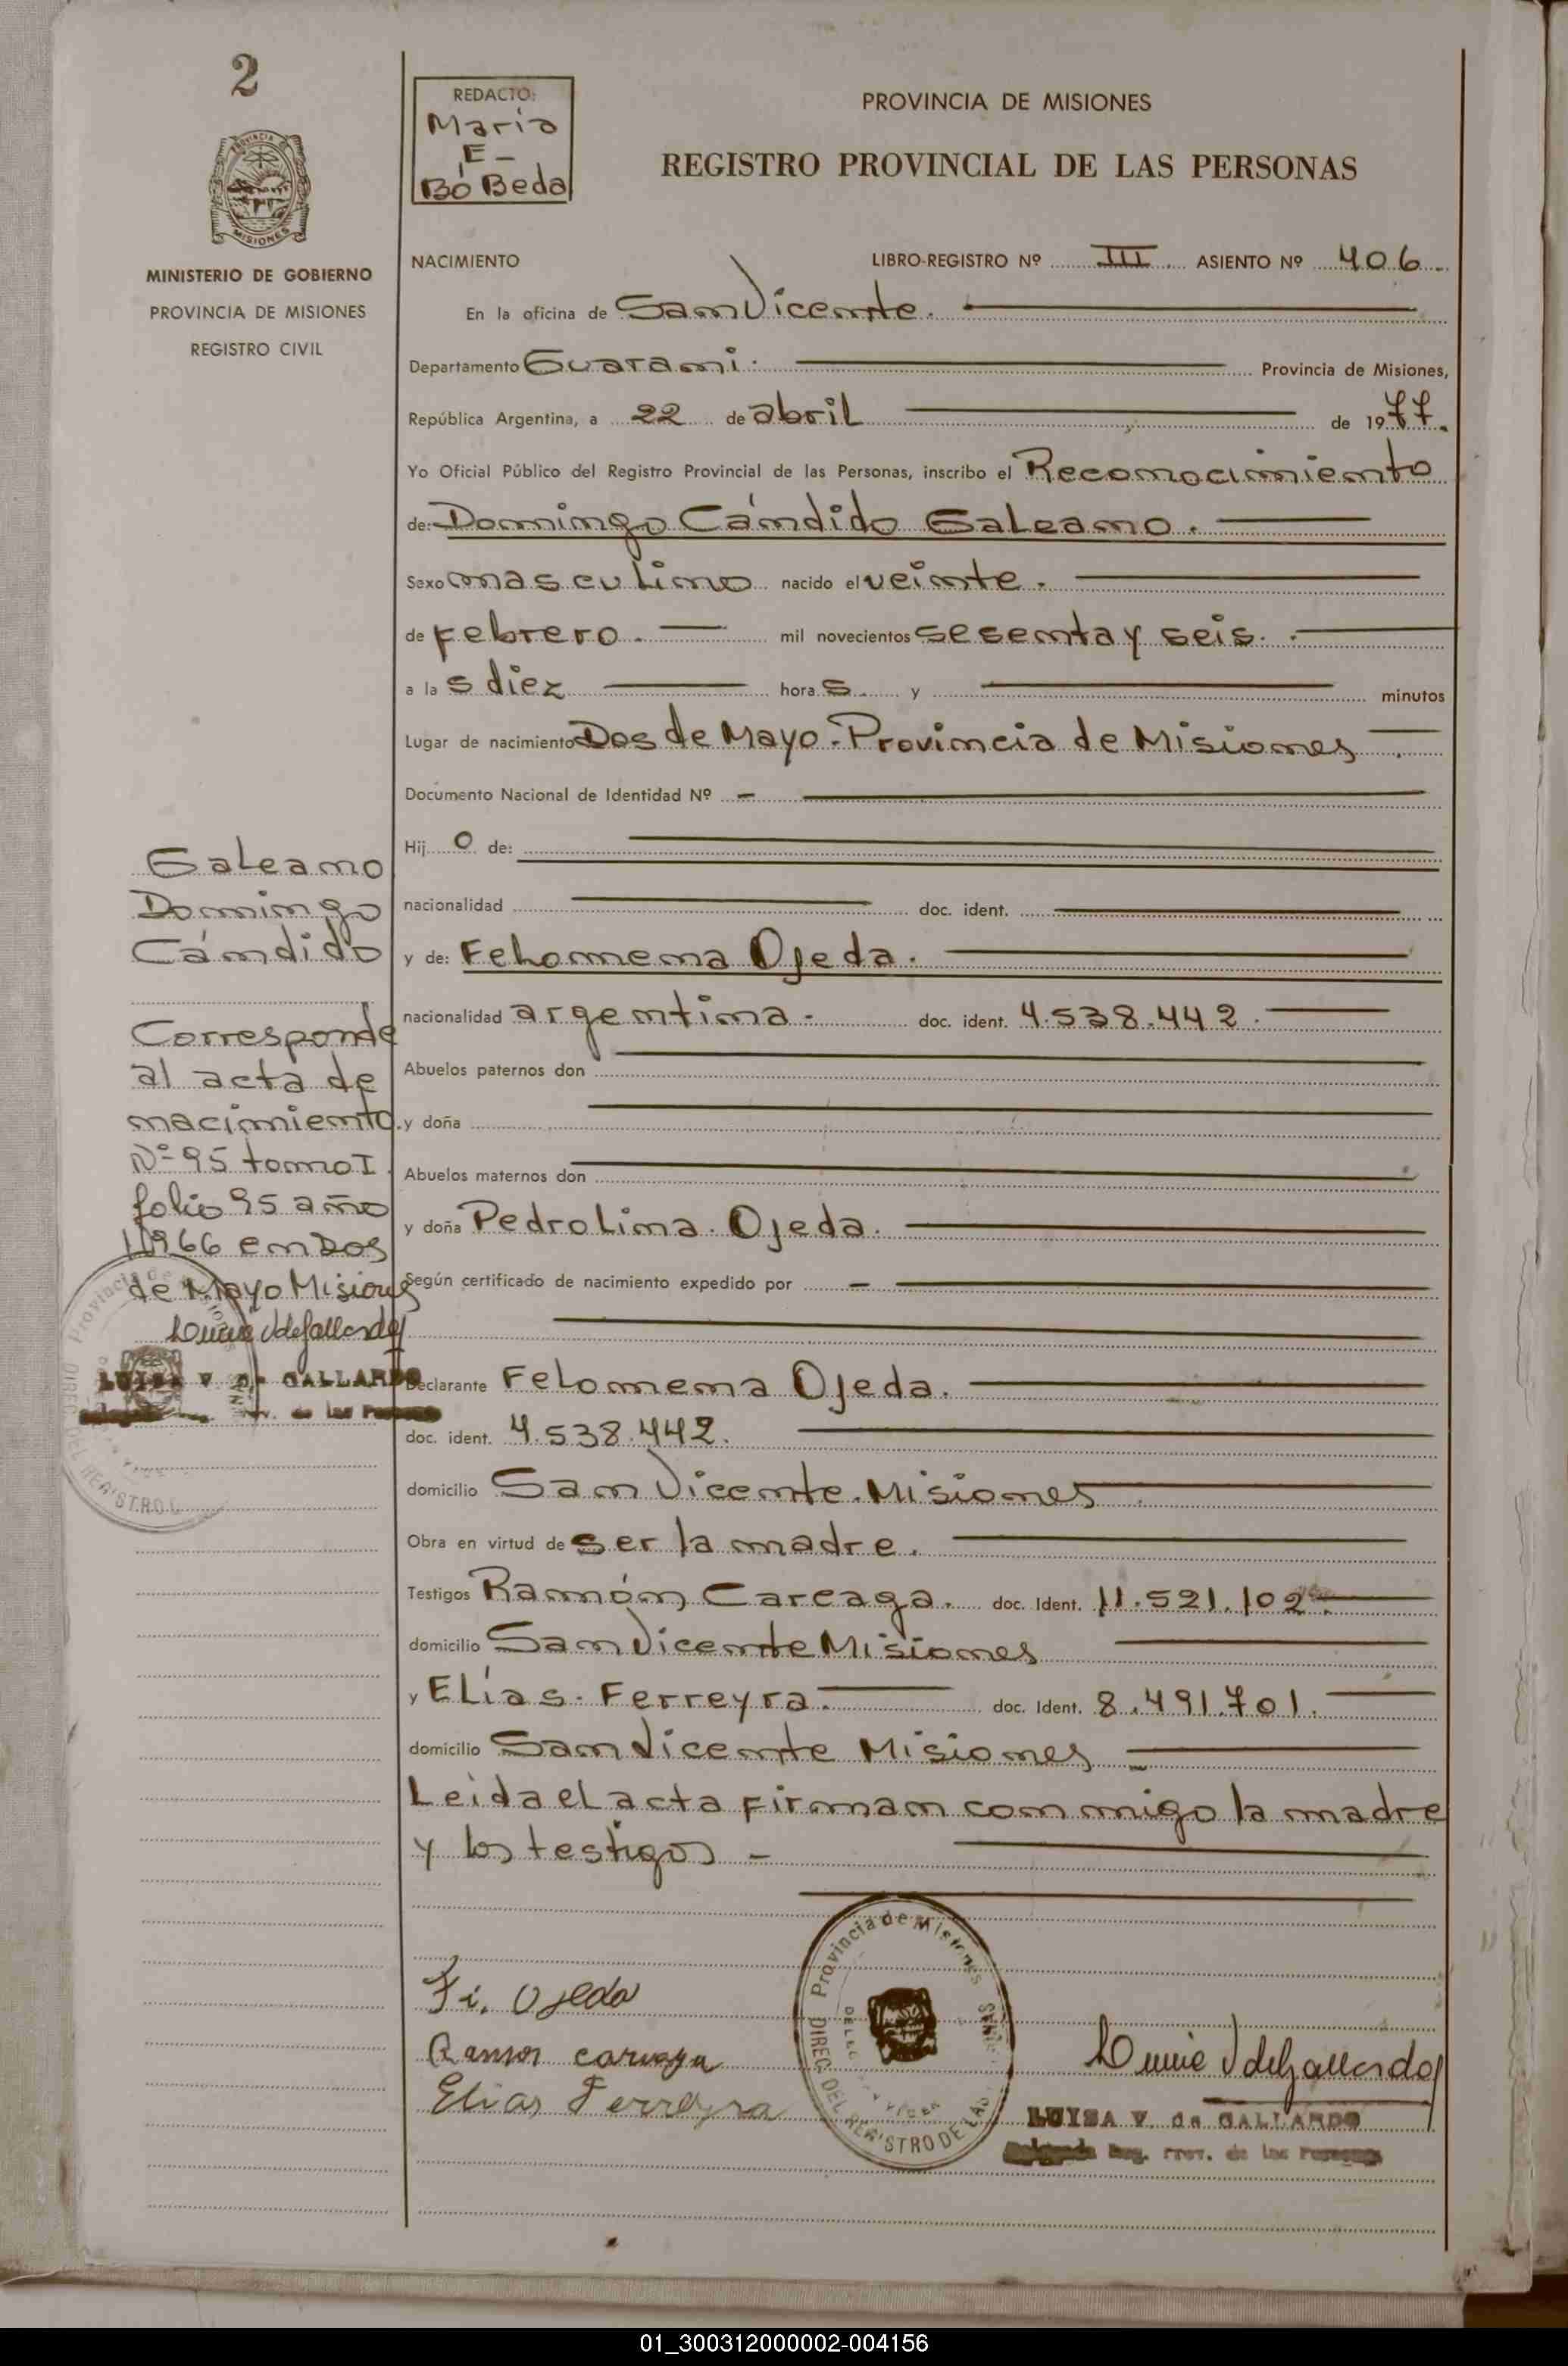 2
PROVINCIA DE
MISIONES
MINISTERIO DE GOBIERNO
PROVINCIA DE MISIONES
REGISTRO CIVIL
REDACTO:
Maria
E-
Bó Beda
PROVINCIA DE MISIONES
REGISTRO PROVINCIAL DE LAS PERSONAS
NACIMIENTO LIBRO-REGISTRO Nº III. ASIENTO Nº 406
En la oficina de San Vicente.
Departamento Guarani. Provincia de Misiones,
República Argentina, a 22 de abril de 1977.
Yo Oficial Público del Registro Provincial de las Personas, inscribo el Reconocimiento
de: Domingo Cándido Galeano.
Sexo masculino nacido el veinte.
de Febrero. mil novecientos sesenta y seis.
a las diez horas y minutos
Lugar de nacimiento Dos de Mayo. Provincia de Misiones
Documento Nacional de Identidad Nº -
Hijo de:
nacionalidad doc. ident.
y de: Felomena Ojeda.
nacionalidad argentina. doc. ident. 4.538.442.
Abuelos paternos don
y doña
Abuelos maternos don
y doña Pedrolina Ojeda.
Según certificado de nacimiento expedido por -
Declarante Felomena Ojeda.
doc. ident. 4.538.442.
domicilio San Vicente. Misiones
Obra en virtud de ser la madre.
Testigos Ramón Careaga. doc. Ident. 11.521.102.
domicilio San Vicente Misiones
y Elías Ferreyra. doc. Ident. 8.491.701.
domicilio San Vicente Misiones
Leida el acta firman con migo la madre
y los testigos -
Galeano
Domingo
Cándido
Corresponde
al acta de
nacimiento
Nº 95 tomo I
folio 95 año
1966 en Dos
de Mayo Misiones
LUISA V. de GALLARDO
Prov. de las Personas
Fi. Ojeda
Ramon careaga
Elias Ferreyra
Provincia de Misiones
DIREC. DEL REGISTRO DE LAS
LUISA V. de GALLARDO
Delegada Reg. Prov. de las Personas
01_300312000002-004156